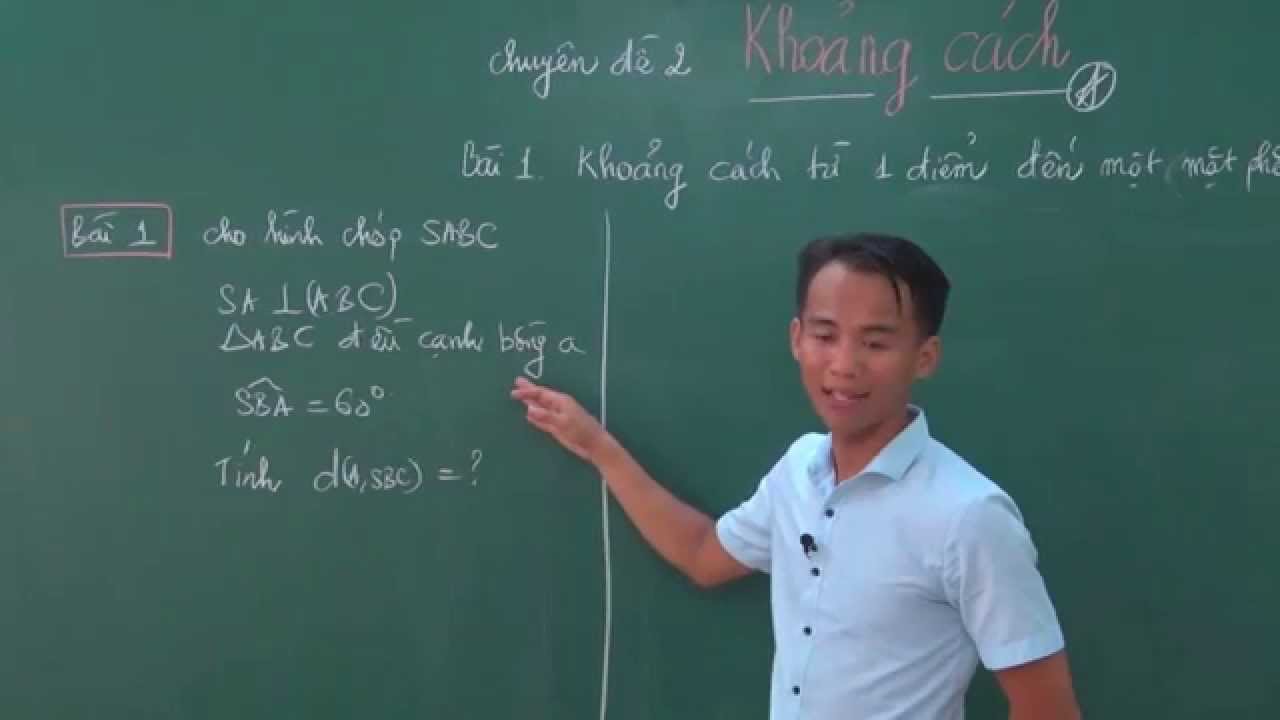 chuyên đề 2 Khoảng cách
Bài 1. Khoảng cách từ 1 điểm đến một mặt
Bài 1 cho hình chóp SABC
SA ⊥ (ABC)
ΔABC đều cạnh bằng a
SBA = 60°
Tính d(A, SBC) = ?